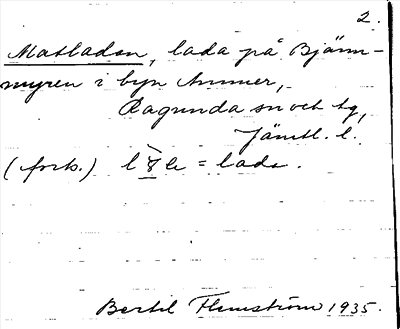 2.
Matladan, lada på Bjänn-
myren i byn Ammer,
Ragunda sn och tg,
Jämtl. l.
(forts.) = lada.
Bertil Flemström 1935.